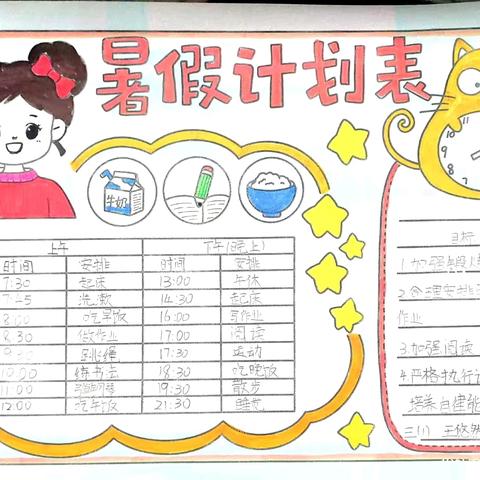 暑假计划表
牛奶
上午 下午(晚上)
时间 安排 时间 安排
7:30 起床 13:00 午休
7:45 洗漱 14:30 起床
8:00 吃早饭 16:00 写作业
8:30 做作业 17:00 阅读
9:30 跳绳 17:30 运动
10:00 练书法 18:30 吃晚饭
11:00 19:30 散步
12:00 吃午饭 21:30 睡觉
11
10
9
8
7
目标
1.加强锻炼
2.合理安排
作业
3.加强阅读
4.严格执行
培养自律能
三(1) 王悠然